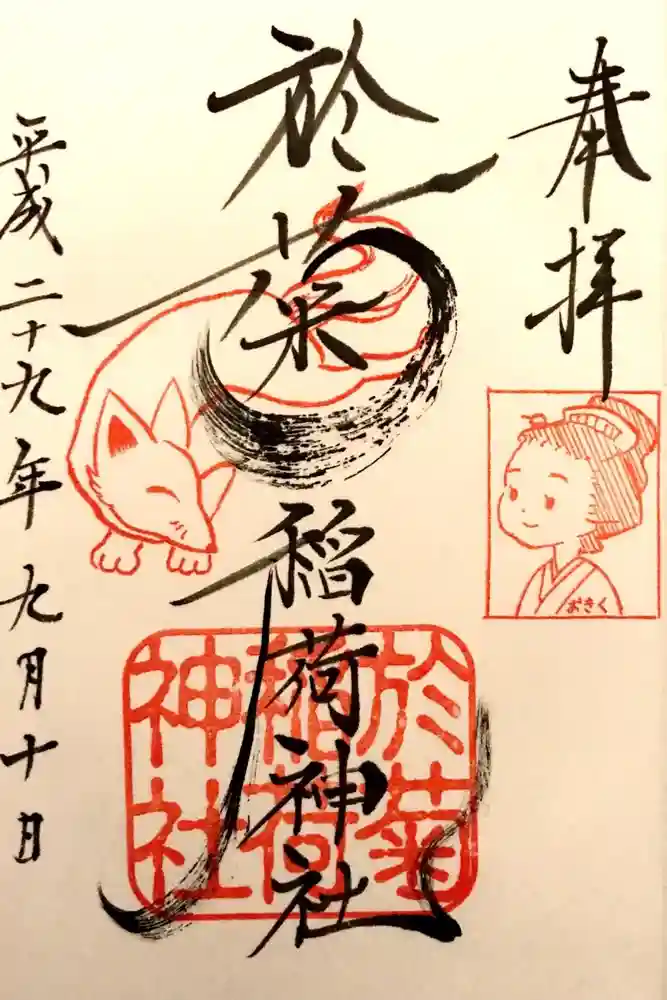 奉拝
おきく
於菊稲荷神社
於菊
稲荷
神社
平成二十九年九月十日